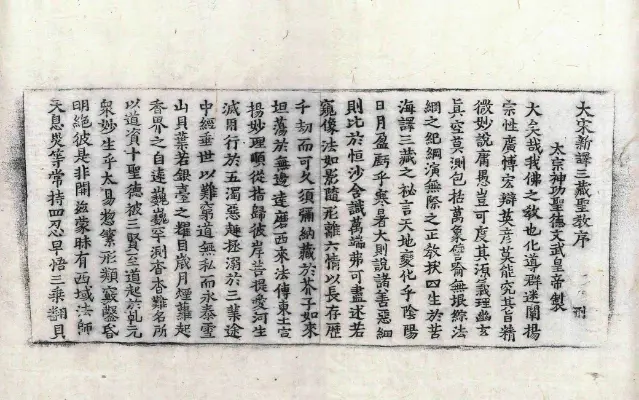 大宋新譯三藏聖教序 刑
太宗神功聖德文武皇帝製
大矣哉我佛之教也化導群迷闡揚
宗性廣博宏辯英彥莫能究其旨精
微妙說庸愚豈可度其源義理幽玄
真空莫測包括萬象譬喻無垠綜法
網之紀綱演無際之正教拔四生於苦
海譯三藏之祕言天地變化乎陰陽
日月盈虧乎寒暑大則說諸善惡細
則比於恒沙含識萬端弗可盡述若
窺像法如影隨形離六情以長存歷
千劫而可久須彌納藏於芥子如來
坦蕩於無邊達磨西來法傳東土宣
揚妙理順從指歸彼岸菩提愛河生
滅用行於五濁惡趣拯溺於三業途
中經垂世以難窮道無私而永泰雪
山貝葉若銀臺之耀目歲月煙蘿起
香界之自遠巍巍罕測杳杳難名所
以道資十聖德被三賢至道起於乾元
眾妙生乎太易惣繁形類竅鑿昏
明絕彼是非開茲蒙昧有西域法師
天息災等常持四忍早悟三乘翻貝